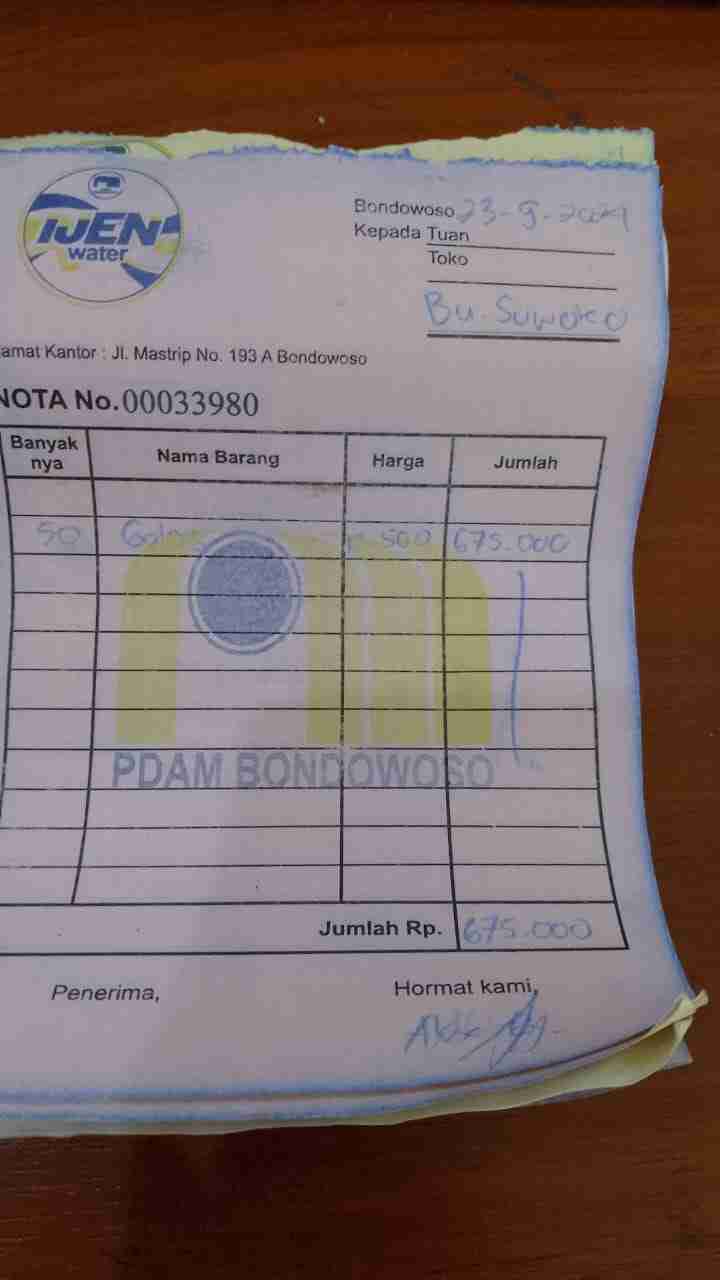 IJEN
water
Bondowoso 23-9-2024
Kepada Tuan
Toko
Bu. Suwoko
amat Kantor : Jl. Mastrip No. 193 A Bondowoso
NOTA No. 00033980
Banyak nya Nama Barang Harga Jumlah
50 500 675.000
PDAM BONDOWOSO
Jumlah Rp. 675.000
Penerima, Hormat kami,